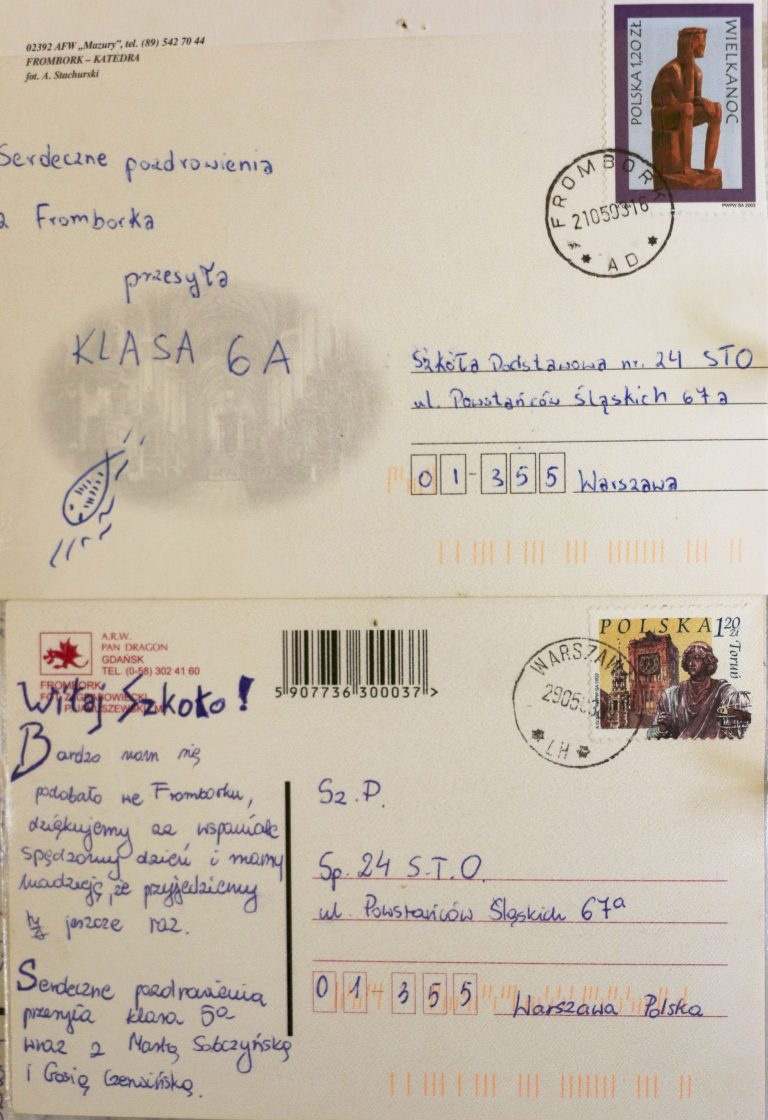 02392 AFW „Mazury", tel. (89) 542 70 44
FROMBORK – KATEDRA
fot. A. Stachurski
POLSKA 1,20 ZŁ
WIELKANOC
PWPW SA 2003
FROMBORK
21050316
AD
Serdeczne pozdrowienia
z Fromborka
przesyła
KLASA 6A
Szkoła Podstawowa nr. 24 STO
ul. Powstańców Śląskich 67a
01-355 Warszawa
A.R.W.
PAN DRAGON
GDAŃSK
TEL. (0-58) 302 41 60
FROMBORK
5 907736 300037 >
POLSKA 1,20 zł
Toruń
WARSZAW
290503
LH
Witaj szkoło!
Bardzo nam się
podobało we Fromborku,
dziękujemy za wspaniale
spędzony dzień i mamy
nadzieję, że przyjedziemy
tu jeszcze raz.
Serdeczne pozdrowienia
przesyła klasa 5a
wraz z Martą Sobczyńską
i Gosią Czerwińską.
Sz.P.
Sp. 24 S.T.O.
ul. Powstańców Śląskich 67a
01-355 Warszawa Polska